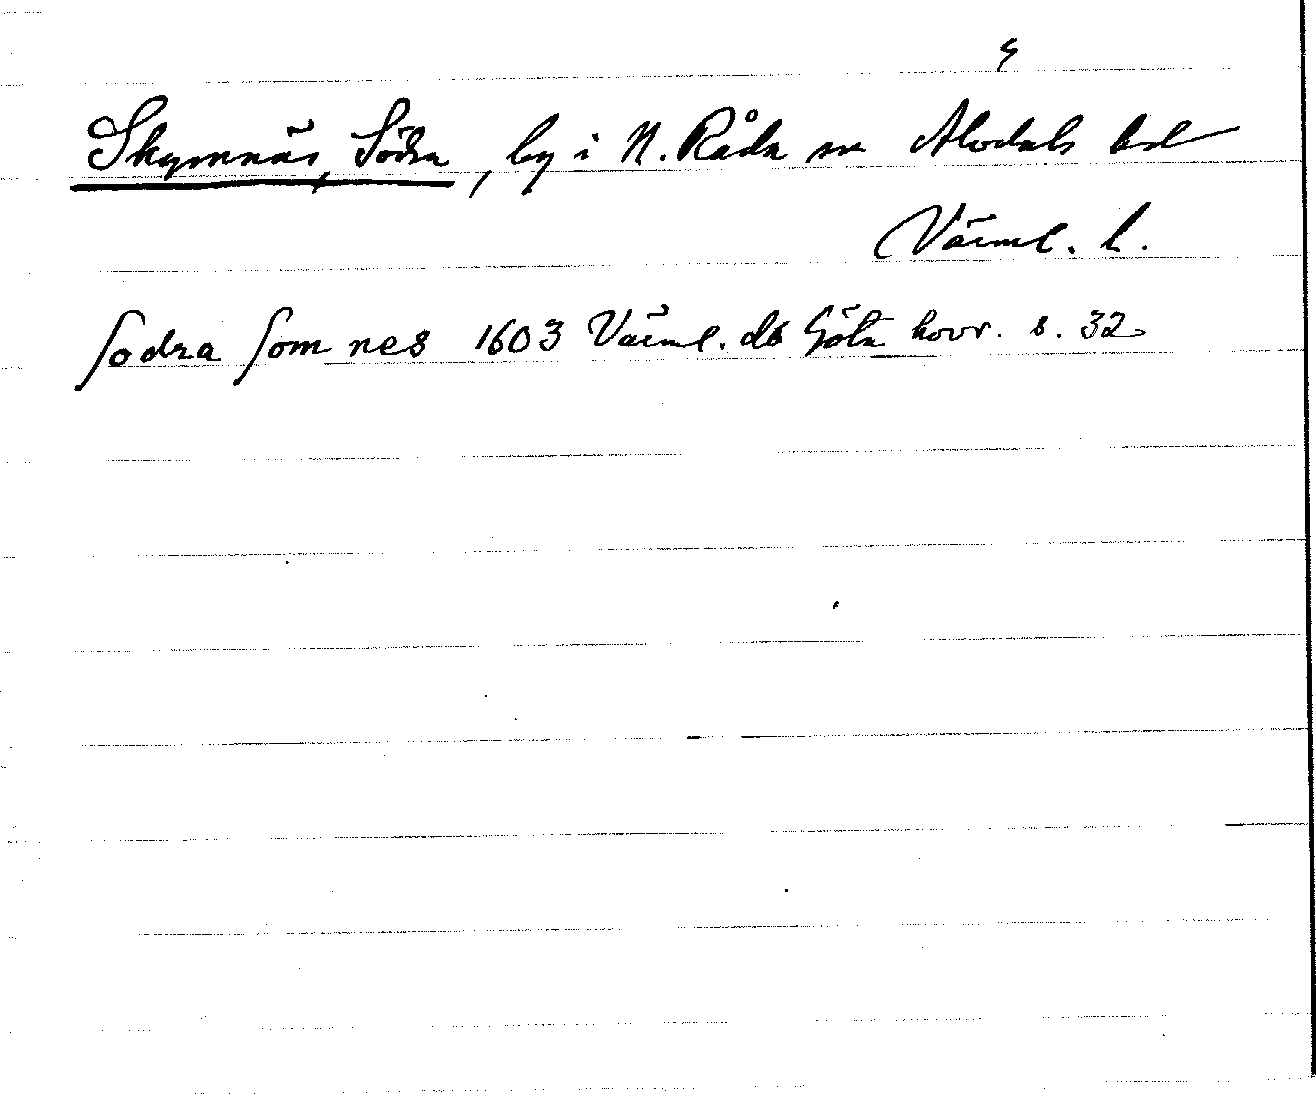 Skymnäs, Södra, by i N. Råda sn Älvdals hd
Värml. l.
Sodra Som nes 1603 Värml. ds Göta hovr. s. 32